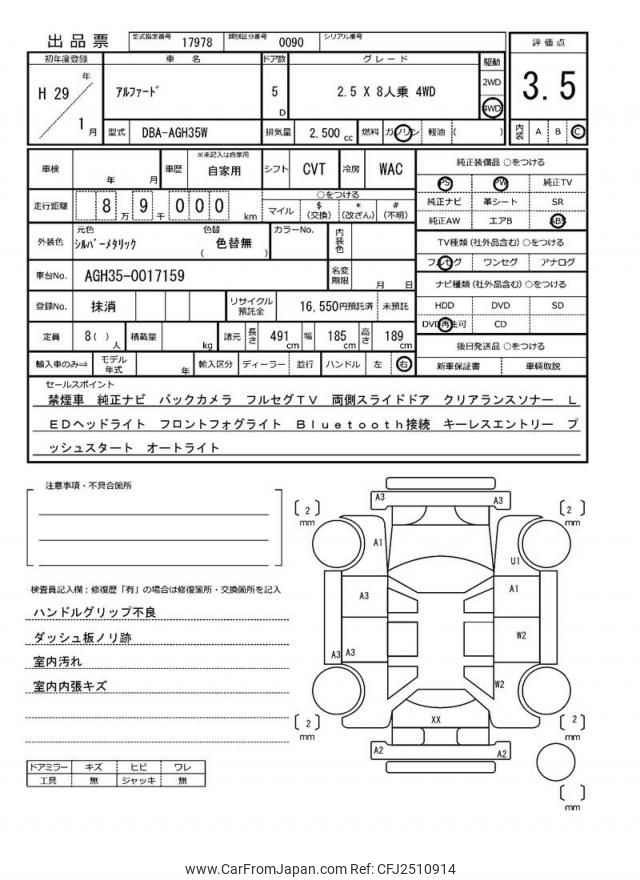 出品票 型式指定番号 17978 類別区分番号 0090 シリアル番号
初年度登録 車名 ドア数 グレード 駆動 評価点
H 29年 1月 アルファード 5 D 2.5 X 8人乗 4WD 2WD 4WD 3.5
型式 DBA-AGH35W 排気量 2,500 cc 燃料 ガソリン 軽油 ( ) 内装 A B C
車検 年 月 車歴 ※未記入は自家用 自家用 シフト CVT 冷房 WAC
走行距離 8万9千000km ○をつける マイル $(交換) *(改ざん) #(不明)
外装色 元色 シルバーメタリック 色替 ( 色替無 ) カラーNo. 内装色
車台No. AGH35-0017159 名変期限 月 日
登録No. 抹消 リサイクル預託金 16,550円預託済 未預託
定員 8( )人 積載量 kg 諸元 長さ 491cm 幅 185cm 高さ 189cm
輸入車のみ⇒ モデル年式 年 輸入区分 ディーラー 並行 ハンドル 左 右
純正装備品 ○をつける
PS PW 純正TV
純正ナビ 革シート SR
純正AW エアB ABS
TV種類(社外品含む) ○をつける
フルセグ ワンセグ アナログ
ナビ種類(社外品含む) ○をつける
HDD DVD SD
DVD再生可 CD
後日発送品 ○をつける
新車保証書 車輌取説
セールスポイント
禁煙車 純正ナビ バックカメラ フルセグTV 両側スライドドア クリアランスソナー L
EDヘッドライト フロントフォグライト Bluetooth接続 キーレスエントリー プ
ッシュスタート オートライト
注意事項・不具合箇所
検査員記入欄：修復歴「有」の場合は修復箇所・交換箇所を記入
ハンドルグリップ不良
ダッシュ板ノリ跡
室内汚れ
室内内張キズ
ドアミラー キズ ヒビ ワレ
工具 無 ジャッキ 無
A3 A3
[2] mm [2] mm
A1 U1
A3 A1
W2
A3 A3
W2
[2] mm XX [2] mm
A2 A2
[ ] mm
www.CarFromJapan.com Ref: CFJ2510914